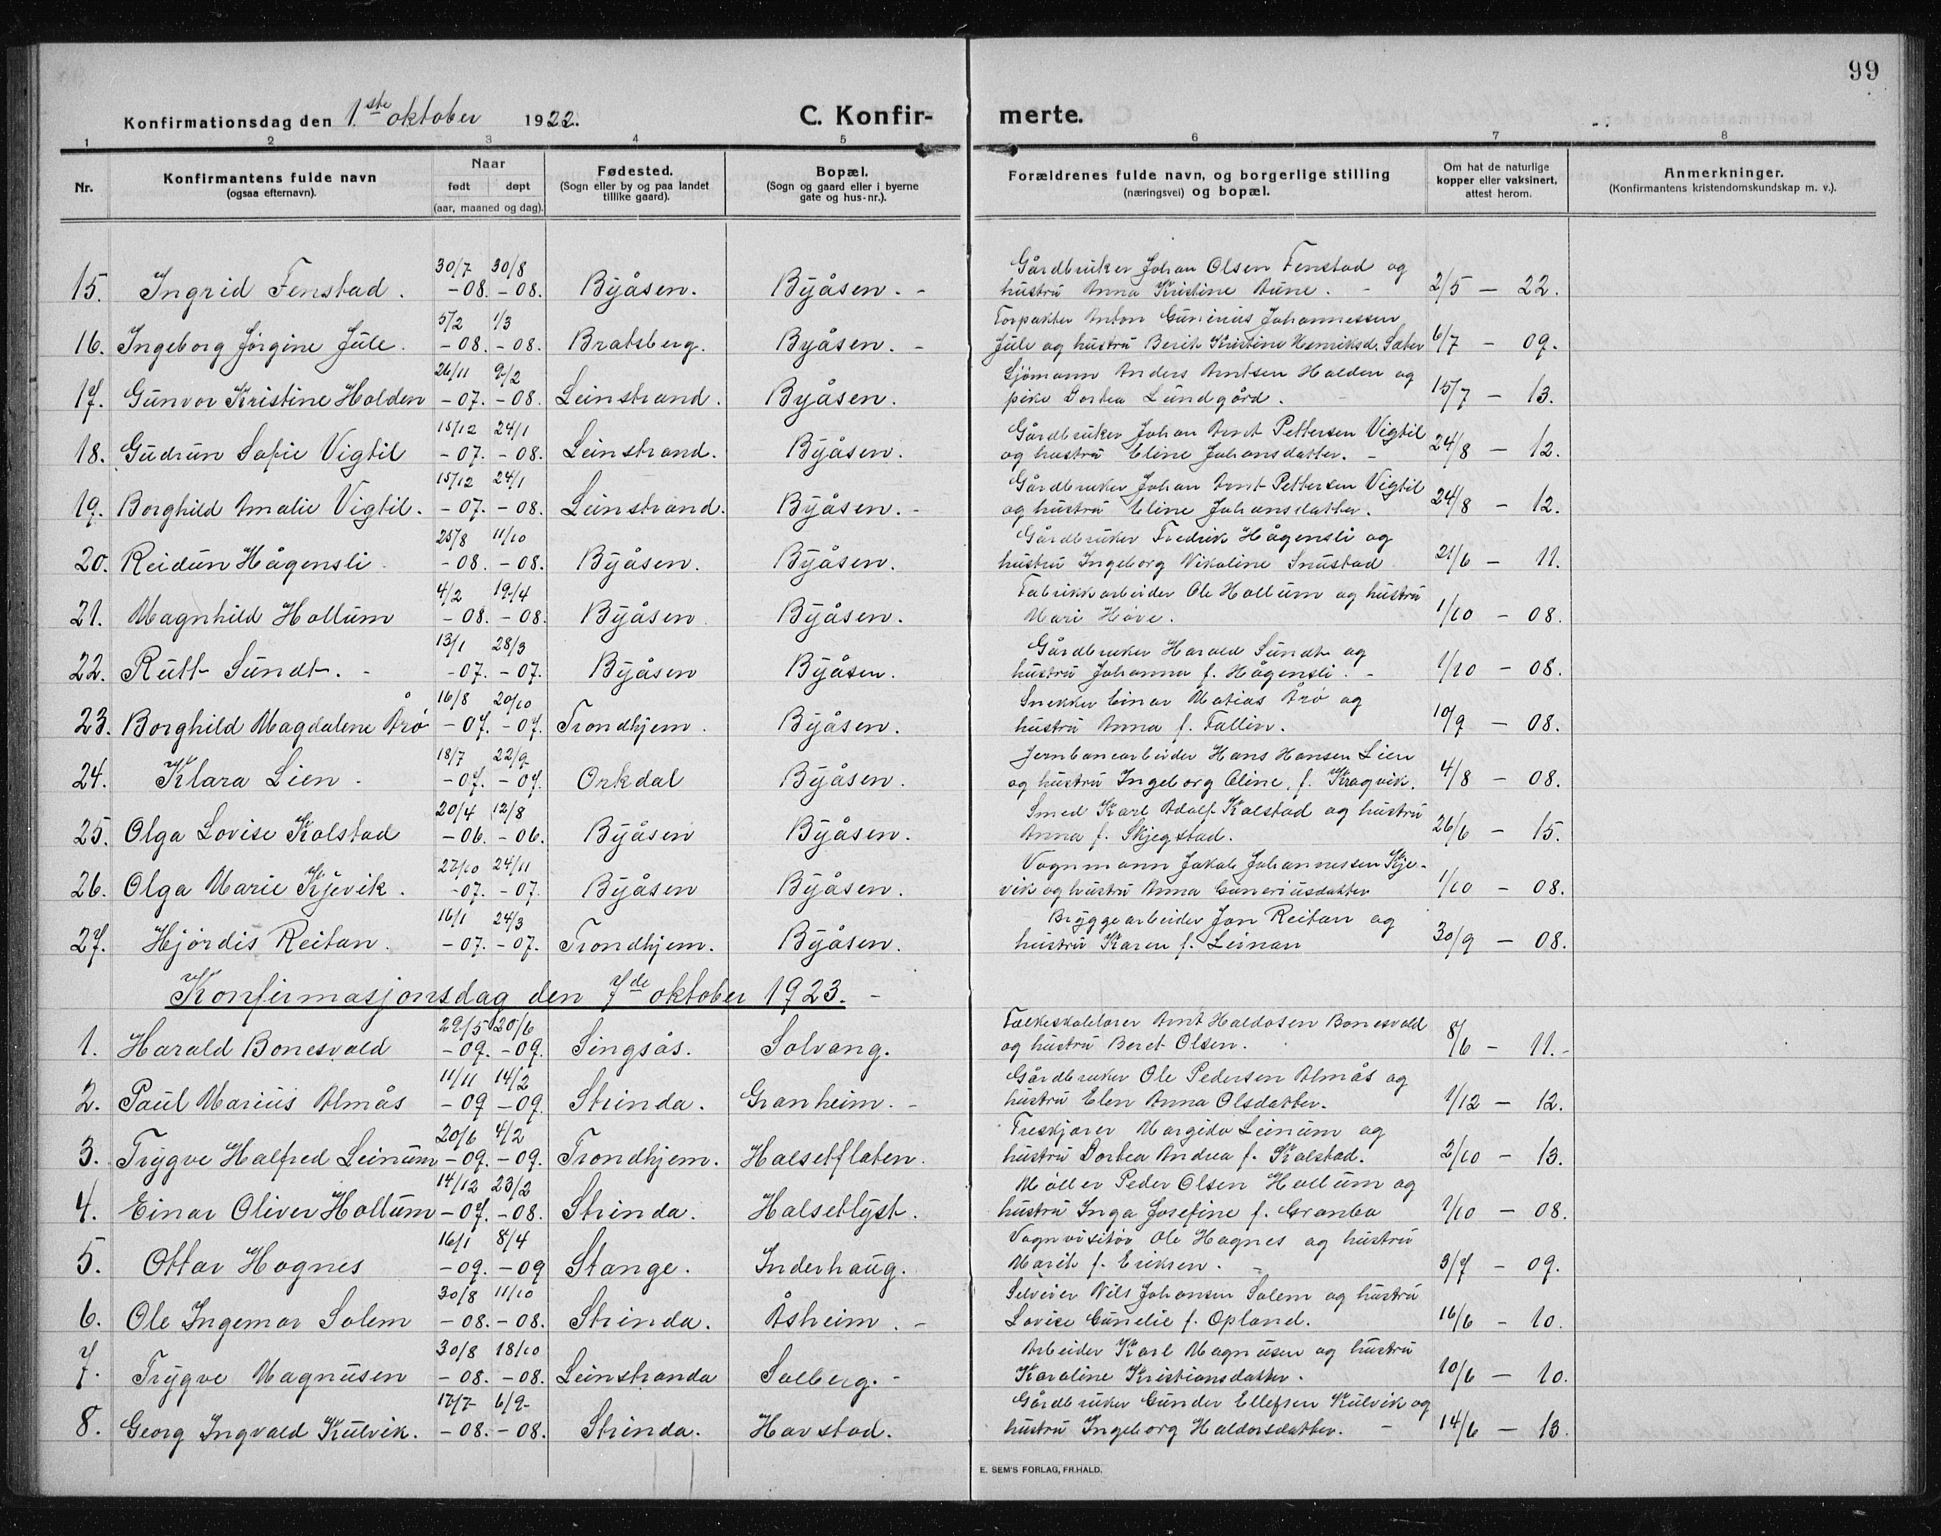 99
Konfirmationsdag den 1.ste oktober 1922. C. Konfirmerte.
1 2 3 4 5 6 7 8
Nr. Konfirmantens fulde navn (ogsaa efternavn). Naar født døpt (aar, maaned og dag). Fødested. (Sogn eller by og paa landet tillike gaard). Bopæl. (Sogn og gaard eller i byerne gate og hus-nr.). Forældrenes fulde navn, og borgerlige stilling (næringsvei) og bopæl. Om hat de naturlige kopper eller vaksinert, attest herom. Anmerkninger. (Konfirmantens kristendomskundskap m. v.).
30/7 30/8 Gårdbruker Johan Olsen Fenstad og
15. Ingrid Fenstad. -08. -08. Byåsen. Byåsen. - hustru Anna Kristine Aune. - 2/5 - 22.
5/2 1/3 Forpakter Anton Gunerius Johannessen
16. Ingeborg Jørgine Jule. -08. -08. Bratsberg. Byåsen. - Jule og hustru Berit Kristine Henriksd. Sæter 6/7 - 09.
26/11 9/2 Sjömann Anders Arntsen Holden og
17. Gunvor Kristine Holden -07. -08. Leinstrand. Byåsen. pike Dortea Lundgård. 15/7 - 13.
15/12 24/1 Gårdbruker Johan Arnt Pettersen Vigtil
18. Gudrun Sofie Vigtil -07. -08. Leinstrand. Byåsen. og hustru Eline Johansdatter. - 24/8 - 12.
15/12 24/1 Gårdbruker Johan Arnt Pettersen Vigtil
19. Borghild Amalie Vigtil. -07. -08. Leinstrand. Byåsen. - og hustru Eline Johansdatter. 24/8 - 12.
25/8 11/10 Gårdbruker Fredrik Hågensli og
20. Reidun Hågensli. -08. -08. Byåsen. Byåsen. hustru Ingeborg Nikoline Snustad 21/6 - 11.
4/2 19/4 Fabrikkarbeider Ole Hollum og hustru
21. Magnhild Hollum -08. -08. Byåsen. Byåsen. Mari Høve. 1/10 - 08.
13/1 28/3 Gårdbruker Harald Sundt og
22. Rutt Sundt. - -07. -07. Byåsen Byåsen. hustru Johanna f. Hågensli. - 1/10 - 08.
16/8 20/10 Snekker Einar Matias Årø og
23. Borghild Magdalene Årø -07. -07. Trondhjem. Byåsen. hustru Anna f. Fallin. 10/9 - 08.
18/7 22/9 Jernbanearbeider Hans Hansen Lien
24. Klara Lien. -07. -07. Orkdal Byåsen. og hustru Ingeborg Oline, f. Kragvik. 4/8 - 08.
20/4 12/8 Smed Karl Adolf Kolstad og hustru
25. Olga Lovise Kolstad -06. -06. Byåsen Byåsen. Anna f. Skjegstad. 26/6 - 15.
27/10 24/11 Vognmann Jakob Johannessen Kje-
26. Olga Marie Kjevik. -07. -07. Byåsen Byåsen vik og hustru Anna Guneriusdatter 1/10 - 08.
16/1 24/3 Bryggearbeider Jon Reitan og
27. Hjørdis Reitan. -07. -07. Trondhjem. Byåsen. hustru Karen f. Leinan 30/9 - 08.
Konfirmasjonsdag den 7de oktober 1923. -
29/5 20/6 Folkeskolelærer Arnt Haldosen Bonesvold
1. Harald Bonesvold -09. -09. Singsås. Solvang. og hustru Beret Olsen. 8/6 - 11. -
11/11 14/2 Gårdbruker Ole Pedersen Almås og
2. Paul Marius Almås -09 -09. Strinda. Granheim. - hustru Elen Anna Olsdatter. 1/12 - 12.
20/6 4/2 Treskjærer Margido Leinum og
3. Trygve Halfred Leinum -09. -09. Trondhjem. Halsetflaten. hustru Dortea Andrea f. Kolstad. 2/10 - 13.
14/12 23/2 Møller Peder Olsen Hollum og
4. Einar Oliver Hollum -07. -08. Strinda. Halsetlyst. hustru Inga Josefine f. Granbo 1/10 - 08.
16/1 8/4 Vognvisitør Ole Hognes og hustru
5. Ottar Hognes -09. -09 Stange. Inderhaug. Marit f. Eriksen. - 3/7 - 09.
30/8 11/10 Selveier Nils Johansen Solem og hustru
6. Ole Ingemar Solem -08. -08. Strinda. Åsheim. - Lovise Gunelie f. Opland. 16/6 - 10.
30/8 18/10 Arbeider Karl Magnusen og hustru
7. Trygve Magnusen -08. -08. Leinstranda Solberg. - Karoline Kristiansdatter. 10/6 - 10.
17/7 6/9 Gårdbruker Gunder Ellefsen Kulvik og
8. Georg Ingvald Kulvik. -08. -08. Strinda. Havstad. hustru Ingeborg Haldorsdatter. - 14/6 - 13.
E. SEM'S FORLAG, FR.HALD.